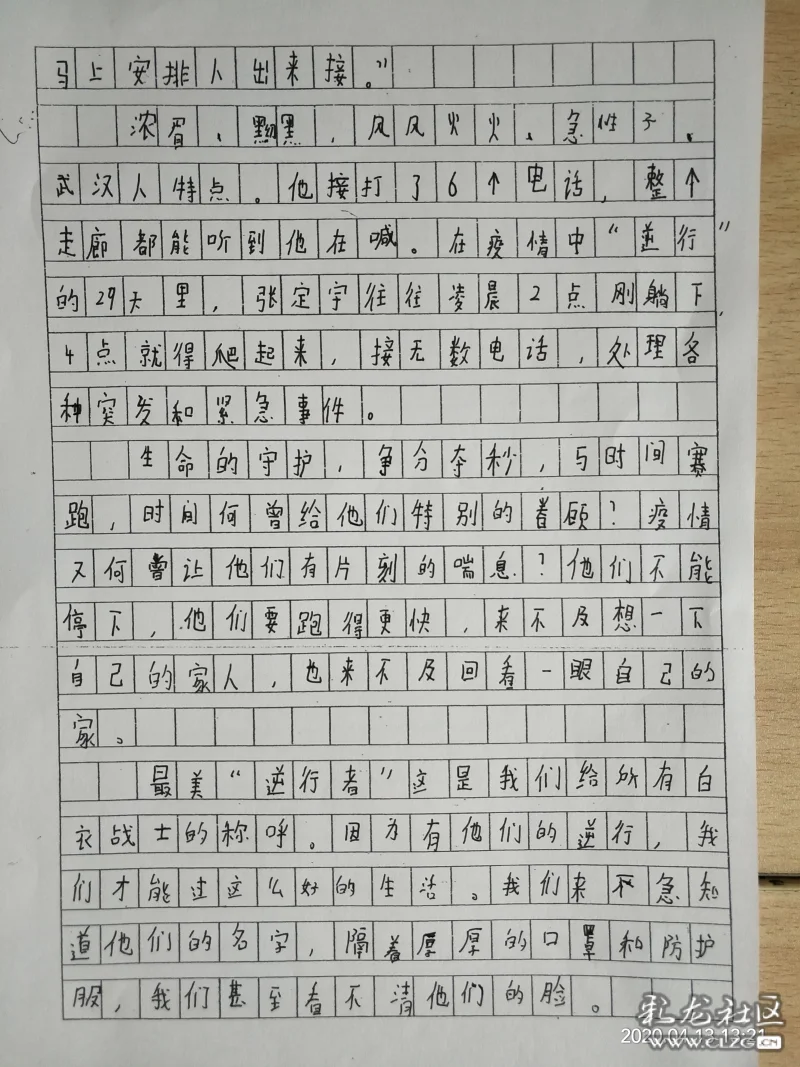 马上安排人出来接。”
浓眉、黝黑,风风火火、急性子、
武汉人特点。他接打了6个电话,整个
走廊都能听到他在喊。在疫情中“逆行”
的29天里,张定宇往往凌晨2点刚躺下,
4点就得爬起来,接无数电话,处理各
种突发和紧急事件。
生命的守护,争分夺秒,与时间赛
跑,时间何曾给他们特别的眷顾?疫情
又何曾让他们有片刻的喘息?他们不能
停下,他们要跑得更快,来不及想一下
自己的家人,也来不及回看一眼自己的
家。
最美“逆行者”这是我们给所有白
衣战士的称呼。因为有他们的逆行,我
们才能过这么好的生活。我们来不急知
道他们的名字,隔着厚厚的口罩和防护
服,我们甚至看不清他们的脸。
2020.04.13 13:21
化龙社区
www.CLZG.CN